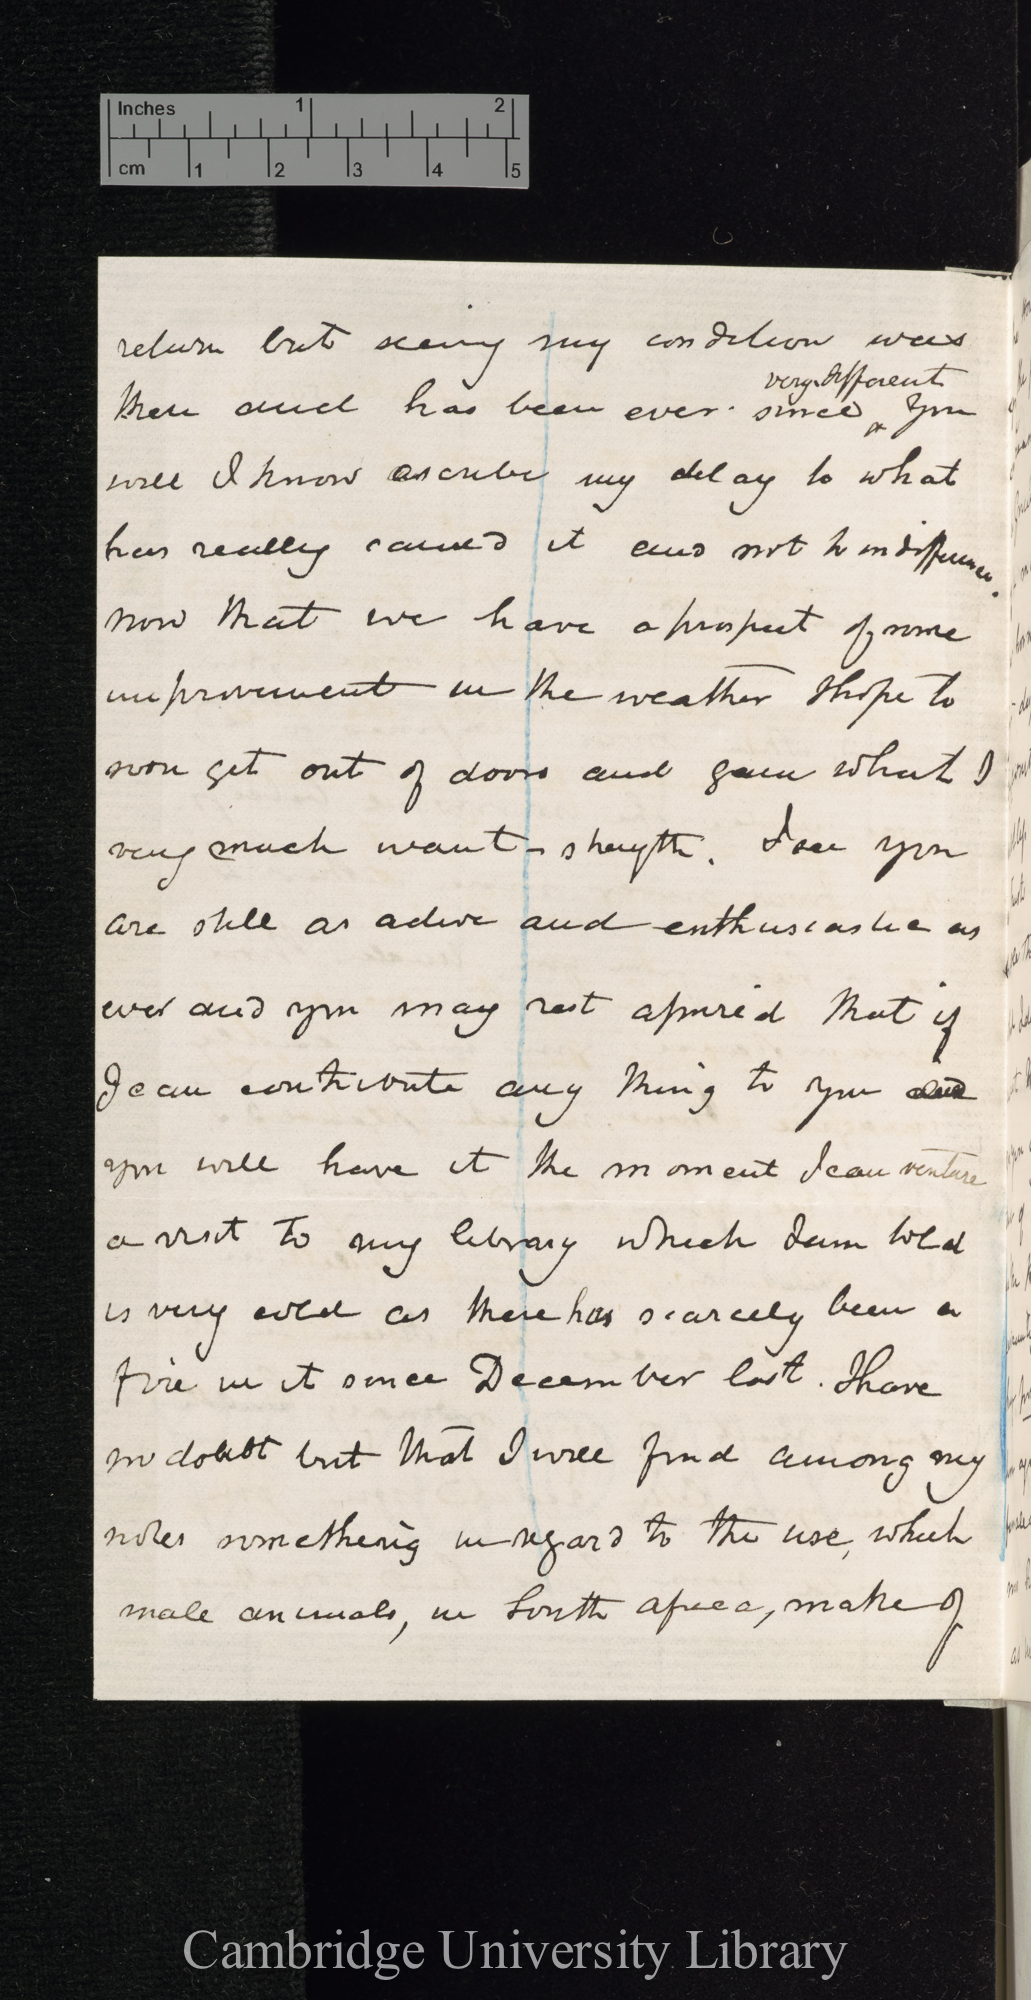 Inches 1 2
cm 1 2 3 4 5
return but seeing my condition was
then and has been ever since very different ^ You
will I know ascribe my delay to what
has really caused it and not to indifference.
now that we have a prospect of some
improvement in the weather I hope to
soon get out of doors and gain what I
very much want – strength. I see you
are still as active and enthusiastic as
ever and you may rest assured that if
I can contribute any thing to you and
you will have it the moment I can venture
a visit to my library which I am told
is very cold as there has scarcely been a
fire in it since December last. I have
no doubt but that I will find among my
notes something in regard to the use, which
male animals, in South Africa, make of
Cambridge University Library